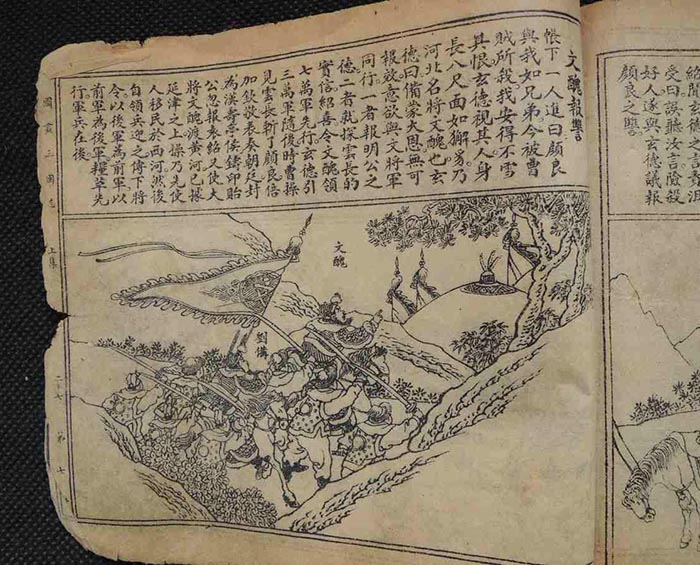 受曰誤聽汝言險殺
好人遂與玄德議報
顏良之讐
文醜報讐
帳下一人進曰顏良
與我如兄弟今被曹
賊所殺我安得不雪
其恨玄德視其人身
長八尺面如獬豸乃
河北名將文醜也玄
德曰備蒙大恩無可
報效意欲與文將軍
同行一者報明公之
德二者就探雲長的
實信紹喜令文醜領
七萬軍先行玄德引
三萬軍隨後時曹操
見雲長斬了顏良倍
加欽敬表奏朝廷封
為漢壽亭侯鑄印貽
公忽報袁紹又使大
將文醜渡黃河已據
延津之上操乃先使
人移民於西河然後
自領兵迎之傳下將
令以後軍為前軍以
前軍為後軍糧草先
行軍兵在後
文醜
劉備
圖畫三國志
上集